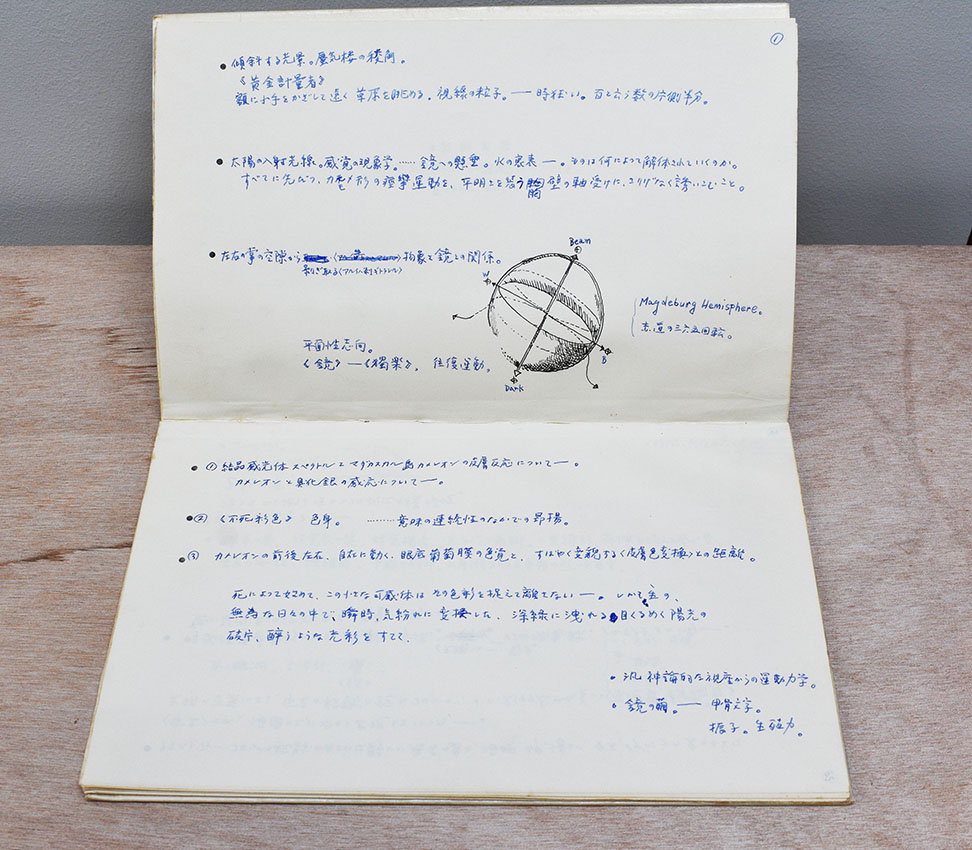 ①
● 傾斜する光景。蜃気楼の稜角。
《黄金計量者》
額に小手をかざして遠く草原を眺める。視線の粒子。— 時狂い。百と六う数の片側半分。
● 太陽の入射光線。感覚の現象学。…… 鏡への懸垂。火の裏表 —。ものは何によって解体されていくのか。
すべてに先だつ、形の運動を、平明さを装う胸壁の軸受けに、さりげなく誘いこむこと。
● 左右の掌の空隙から 抽象と鏡との関係。
剥ぎ取る
Beam
W
B
Dark
Magdeburg Hemisphere。
赤道の三六五回転。
平面性志向。
《鏡》—《獨楽》。往復運動。
● ① 結晶感光体スペクトルとマダガスカル島カメレオンの皮膚反応について—。
カメレオンと臭化銀の感光について—。
● ② 《不死彩色》 色身。 ……… 意味の連続性のなかでの昂揚。
● ③ カメレオンの前後左右、自在に動く、眼底葡萄膜の色覚と、すばやく変貌する〈皮膚色変換〉との距離。
死によって始めて、この小さな可感体はその色彩を捉えて離さない —。
無為な日々の中で、瞬時、気紛れに変換した、深緑に洩れる目くるめく陽光の
破片、酔うような光彩をすてて、
● 汎神論的な視座からの運動力学。
● 鏡の繭。— 甲骨文字。
振子。生殖力。